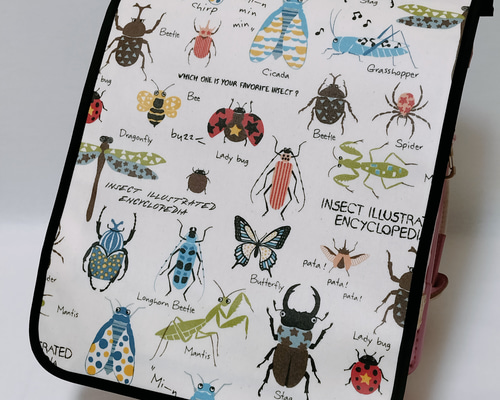 Chirp
min
min
min
Stag
Beetle
Cicada
Grasshopper
WHICH ONE IS YOUR FAVORITE INSECT?
bug
Bee
Beetle
Spider
Dragonfly
buzz—
Lady bug
INSECT ILLUSTRATED
ENCYCLOPEDIA
INSECT ILLUSTRAT
ENCYCLOPEDI
M
Butterfly
pata!
pata!
pata!
Longhorn Beetle
Mantis
Mantis
Lady bug
TRATED
IA
"Mi—n
Stag